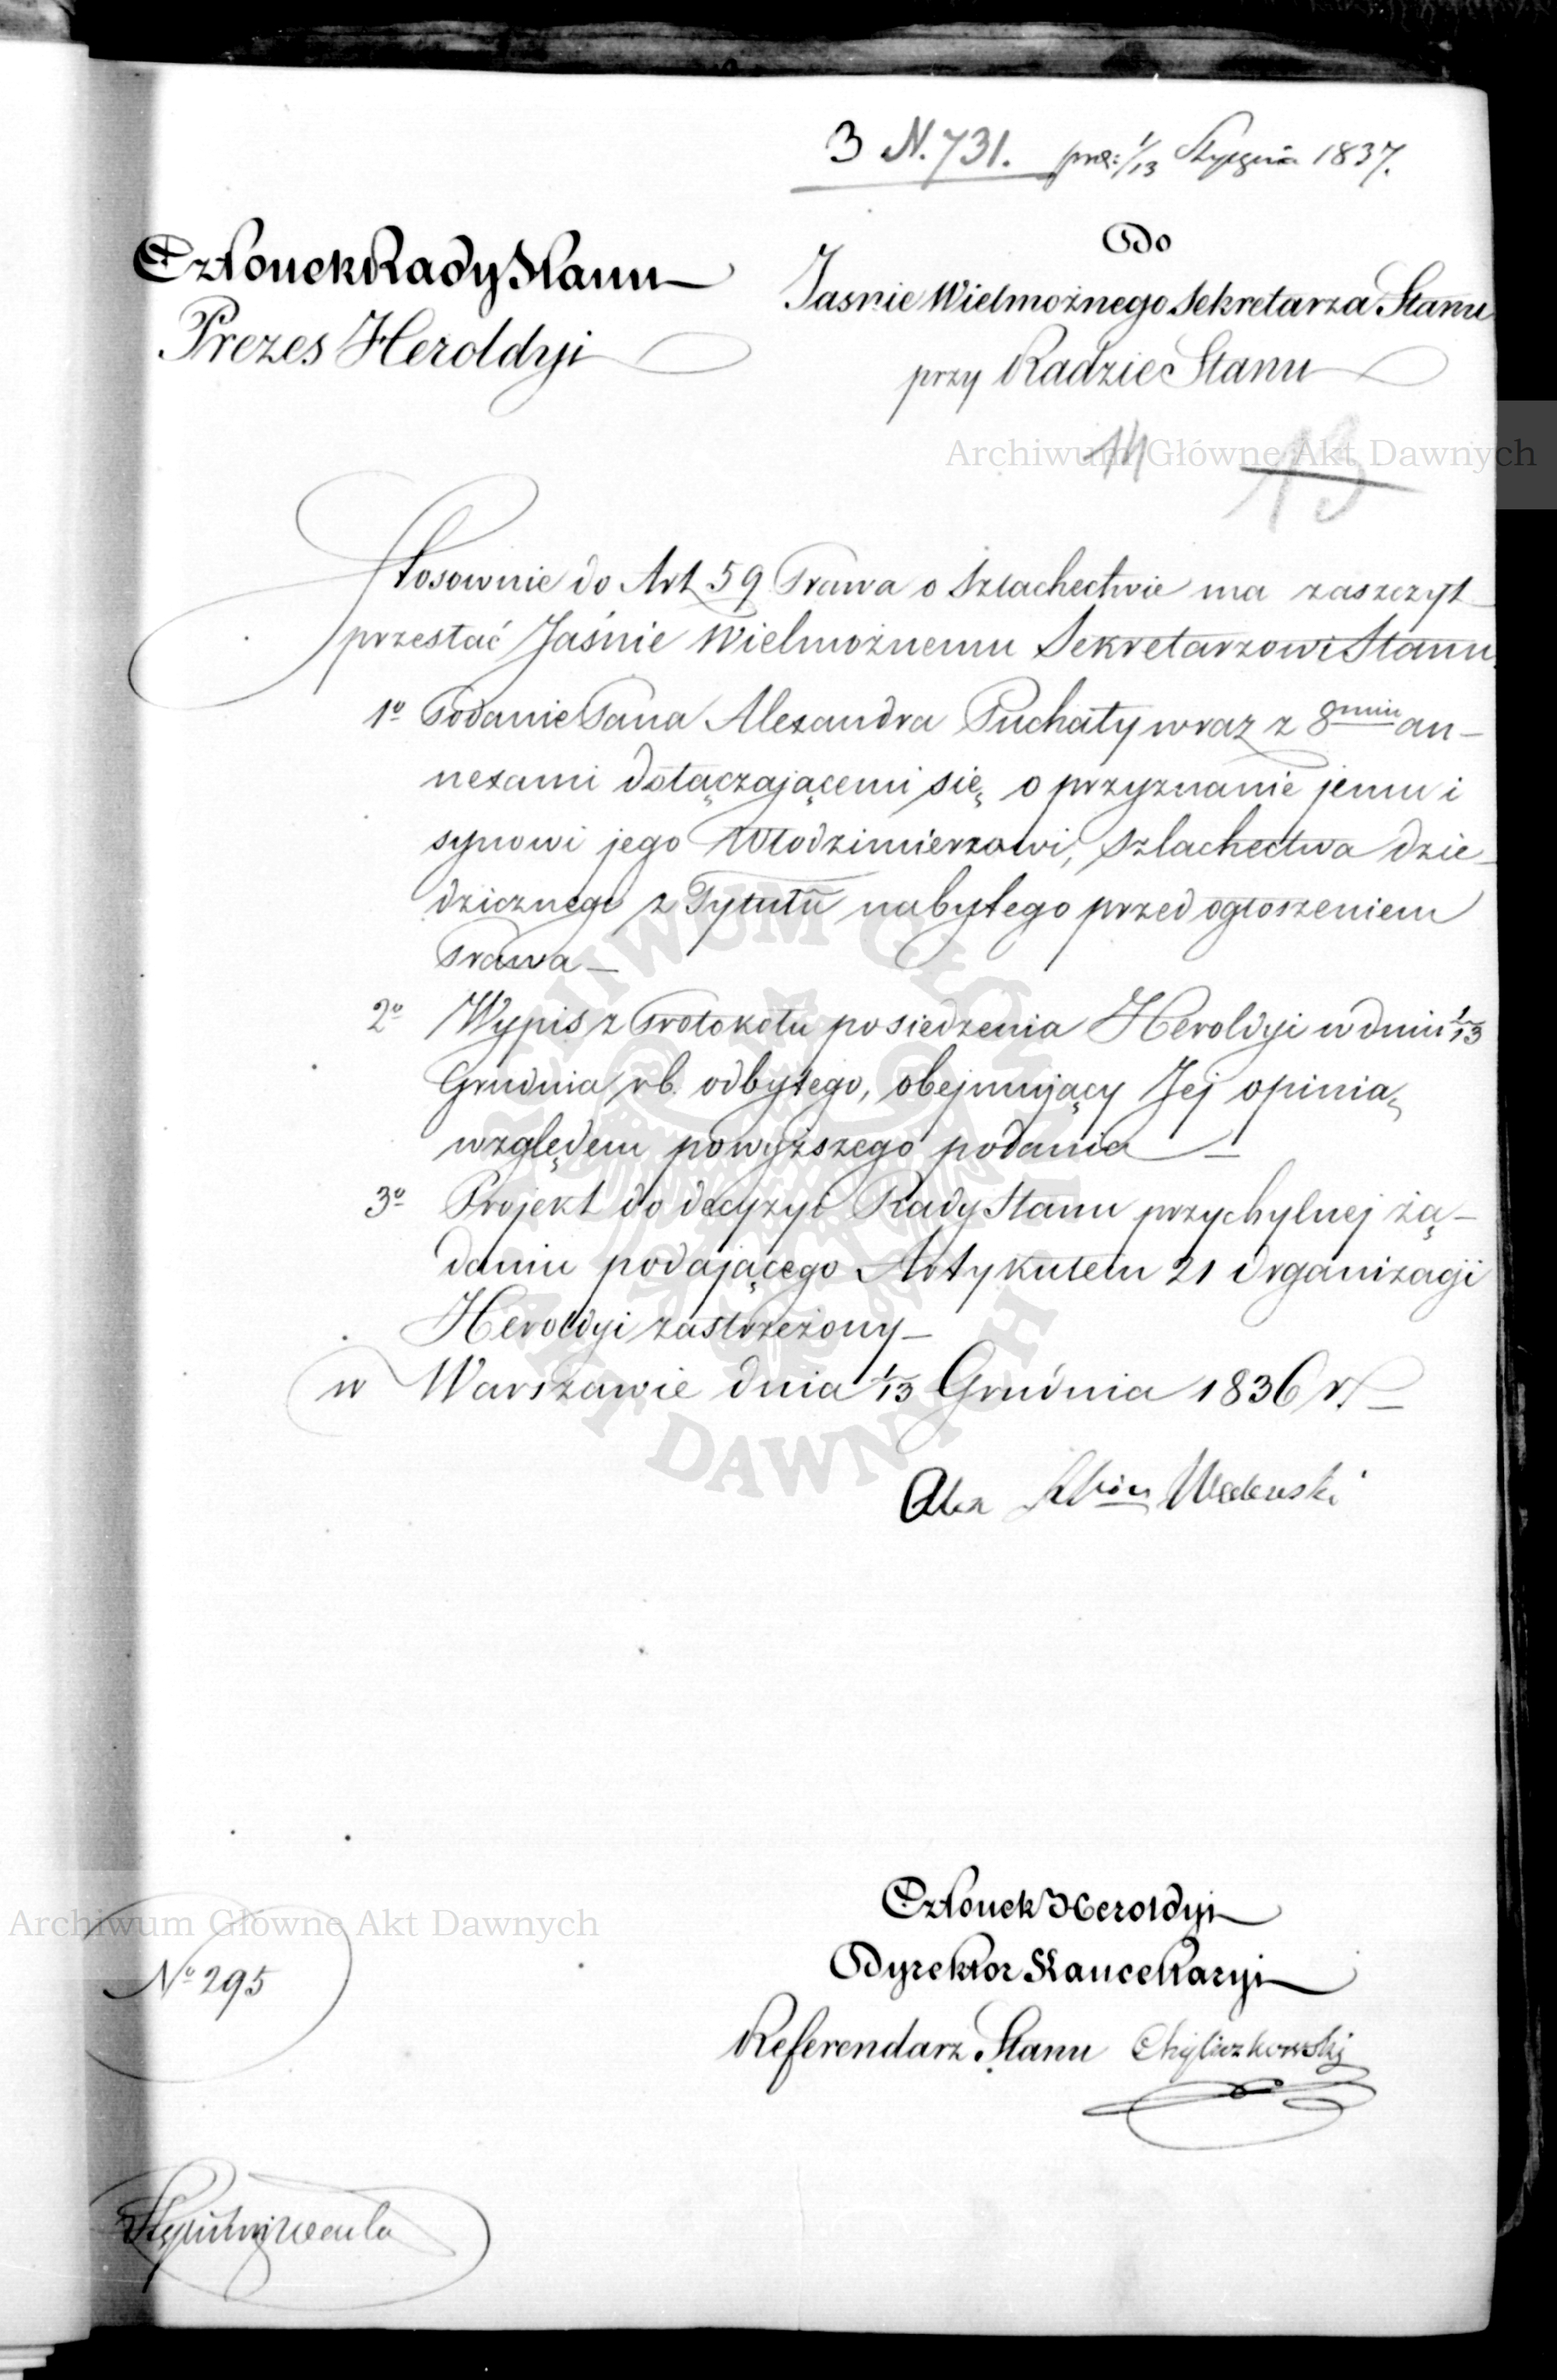 3 N. 731. pres: 1/13 Stycznia 1837.
Członek Rady Stanu
Prezes Heroldyi
Do
Jasnie Wielmożnego Sekretarza Stanu
przy Radzie Stanu
14 13
Stosownie do Art 59 Prawa o Szlachectwie ma zaszczyt
przesłać Jaśnie Wielmożnemu Sekretarzowi Stanu
1o Podanie Pana Alexandra Puchaty wraz z 8miu an-
nexami dołączającemi się, o przyznanie jemu i
synowi jego Włodzimierzowi, szlachectwa dzie-
dzicznego z Tytułu nabytego przed ogłoszeniem
Prawa –
2o Wypis z Protokołu posiedzenia Heroldyi w dniu 1/13
Grudnia rb. odbytego, obejmujący Jej opinią,
względem powyższego podania –
3o Projekt do decyzyi Rady Stanu przychylnej żą-
daniu podającego Artykułem 21 Organizacji
Heroldyi zastrzeżony –
w Warszawie dnia 1/13 Grudnia 1836 r. –
Członek Heroldyi
Dyrektor Kancellaryi
Referendarz Stanu Chyliczkowski
No 295
Archiwum Główne Akt Dawnych
Archiwum Główne Akt Dawnych
ARCHIWUM GŁÓWNE AKT DAWNYCH